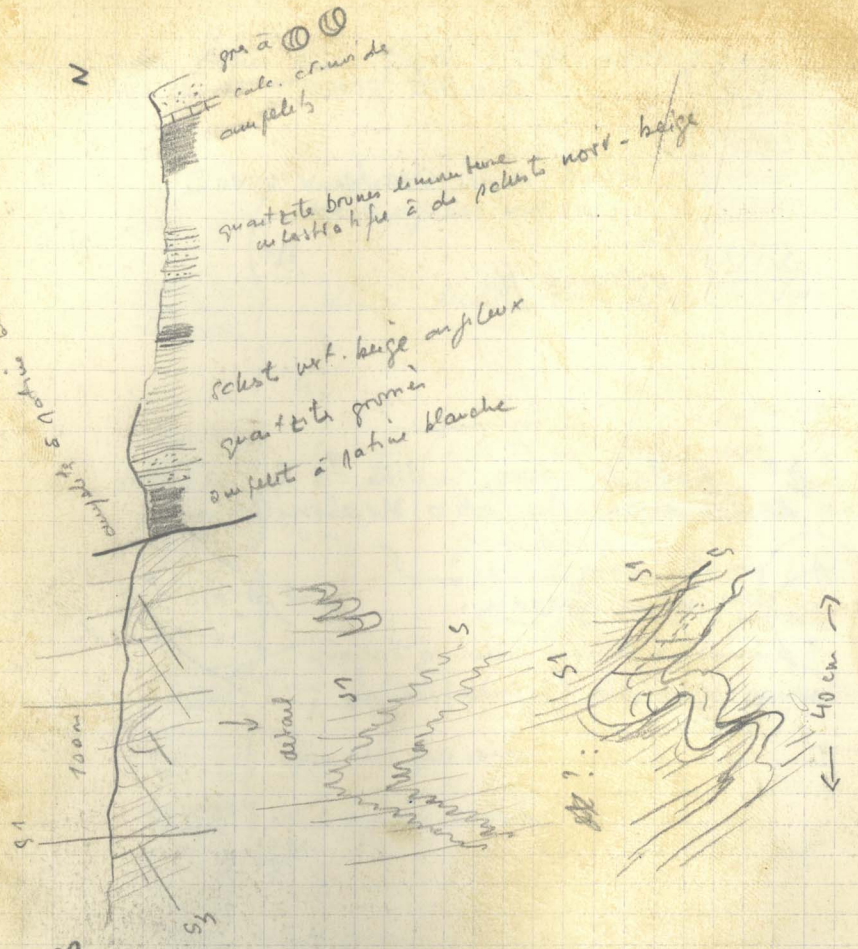 N
grès à
calc. crinoïdes
ampelites
quartzite brunes
interstratifié à des schists noir - beige
schists vert. beige
quartzite grossier
ampelites à patine blanche
ampelite à patine
100m
S1
détail
S1
S
S1
S
S1
← 40 cm →
?